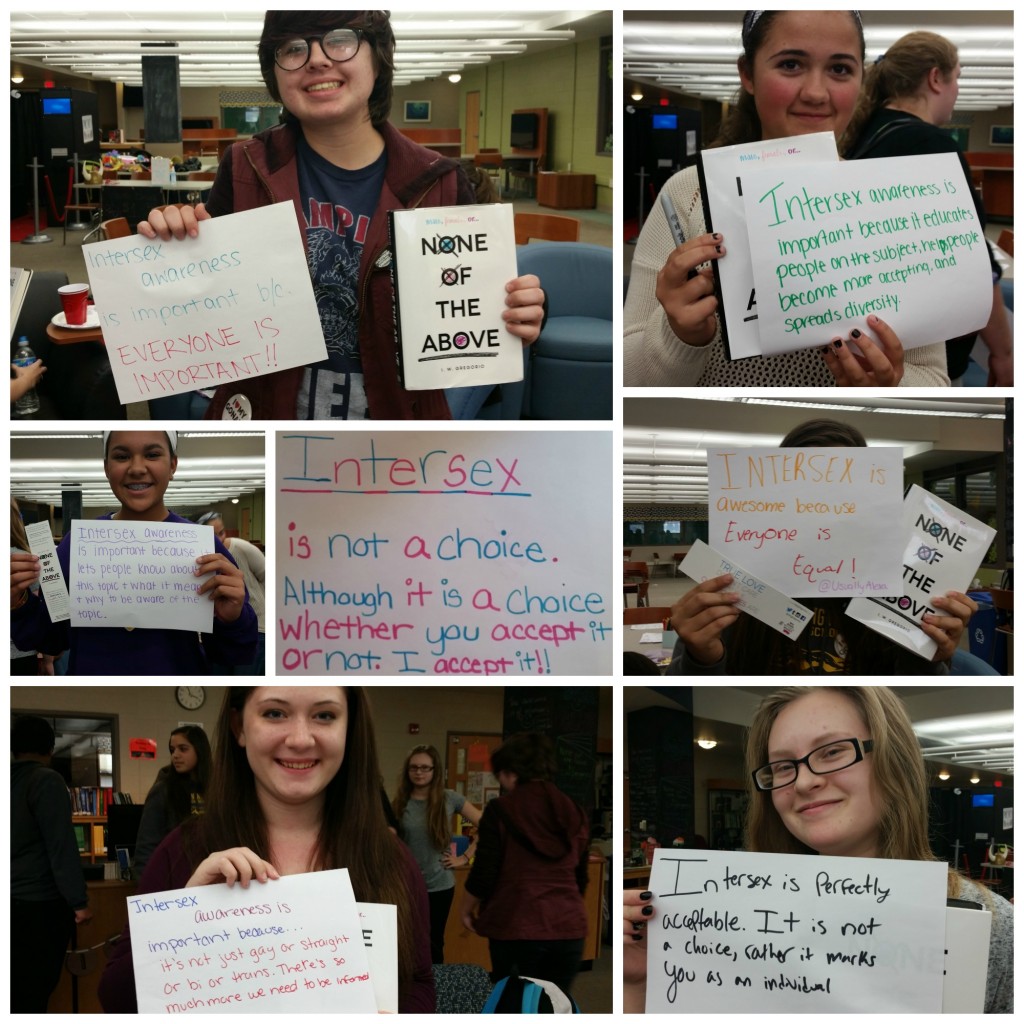 Intersex
awareness
is important b/c.
EVERYONE IS
IMPORTANT!!
male, female, or...
NONE
OF
THE
ABOVE
I. W. GREGORIO
Intersex awareness is
important because it educates
people on the subject, help people
become more accepting, and
spreads diversity.
Intersex awareness
is important because it
lets people know about
this topic + what it mea
+ why to be aware of the
topic.
NONE
OF THE
ABOVE
Intersex
is not a choice.
Although it is a choice
whether you accept it
or not. I accept it!!
INTERSEX is
awesome because
Everyone is
Equal!
@UsuallyAlexa
TRUE LOVE
NONE
OF
THE
ABOVE
I. W. GREGORIO
Intersex
awareness is
important because...
it's not just gay or straight
or bi or trans. There's so
much more we need to be informed
Intersex is Perfectly
acceptable. It is not
a choice, rather it marks
you as an individual